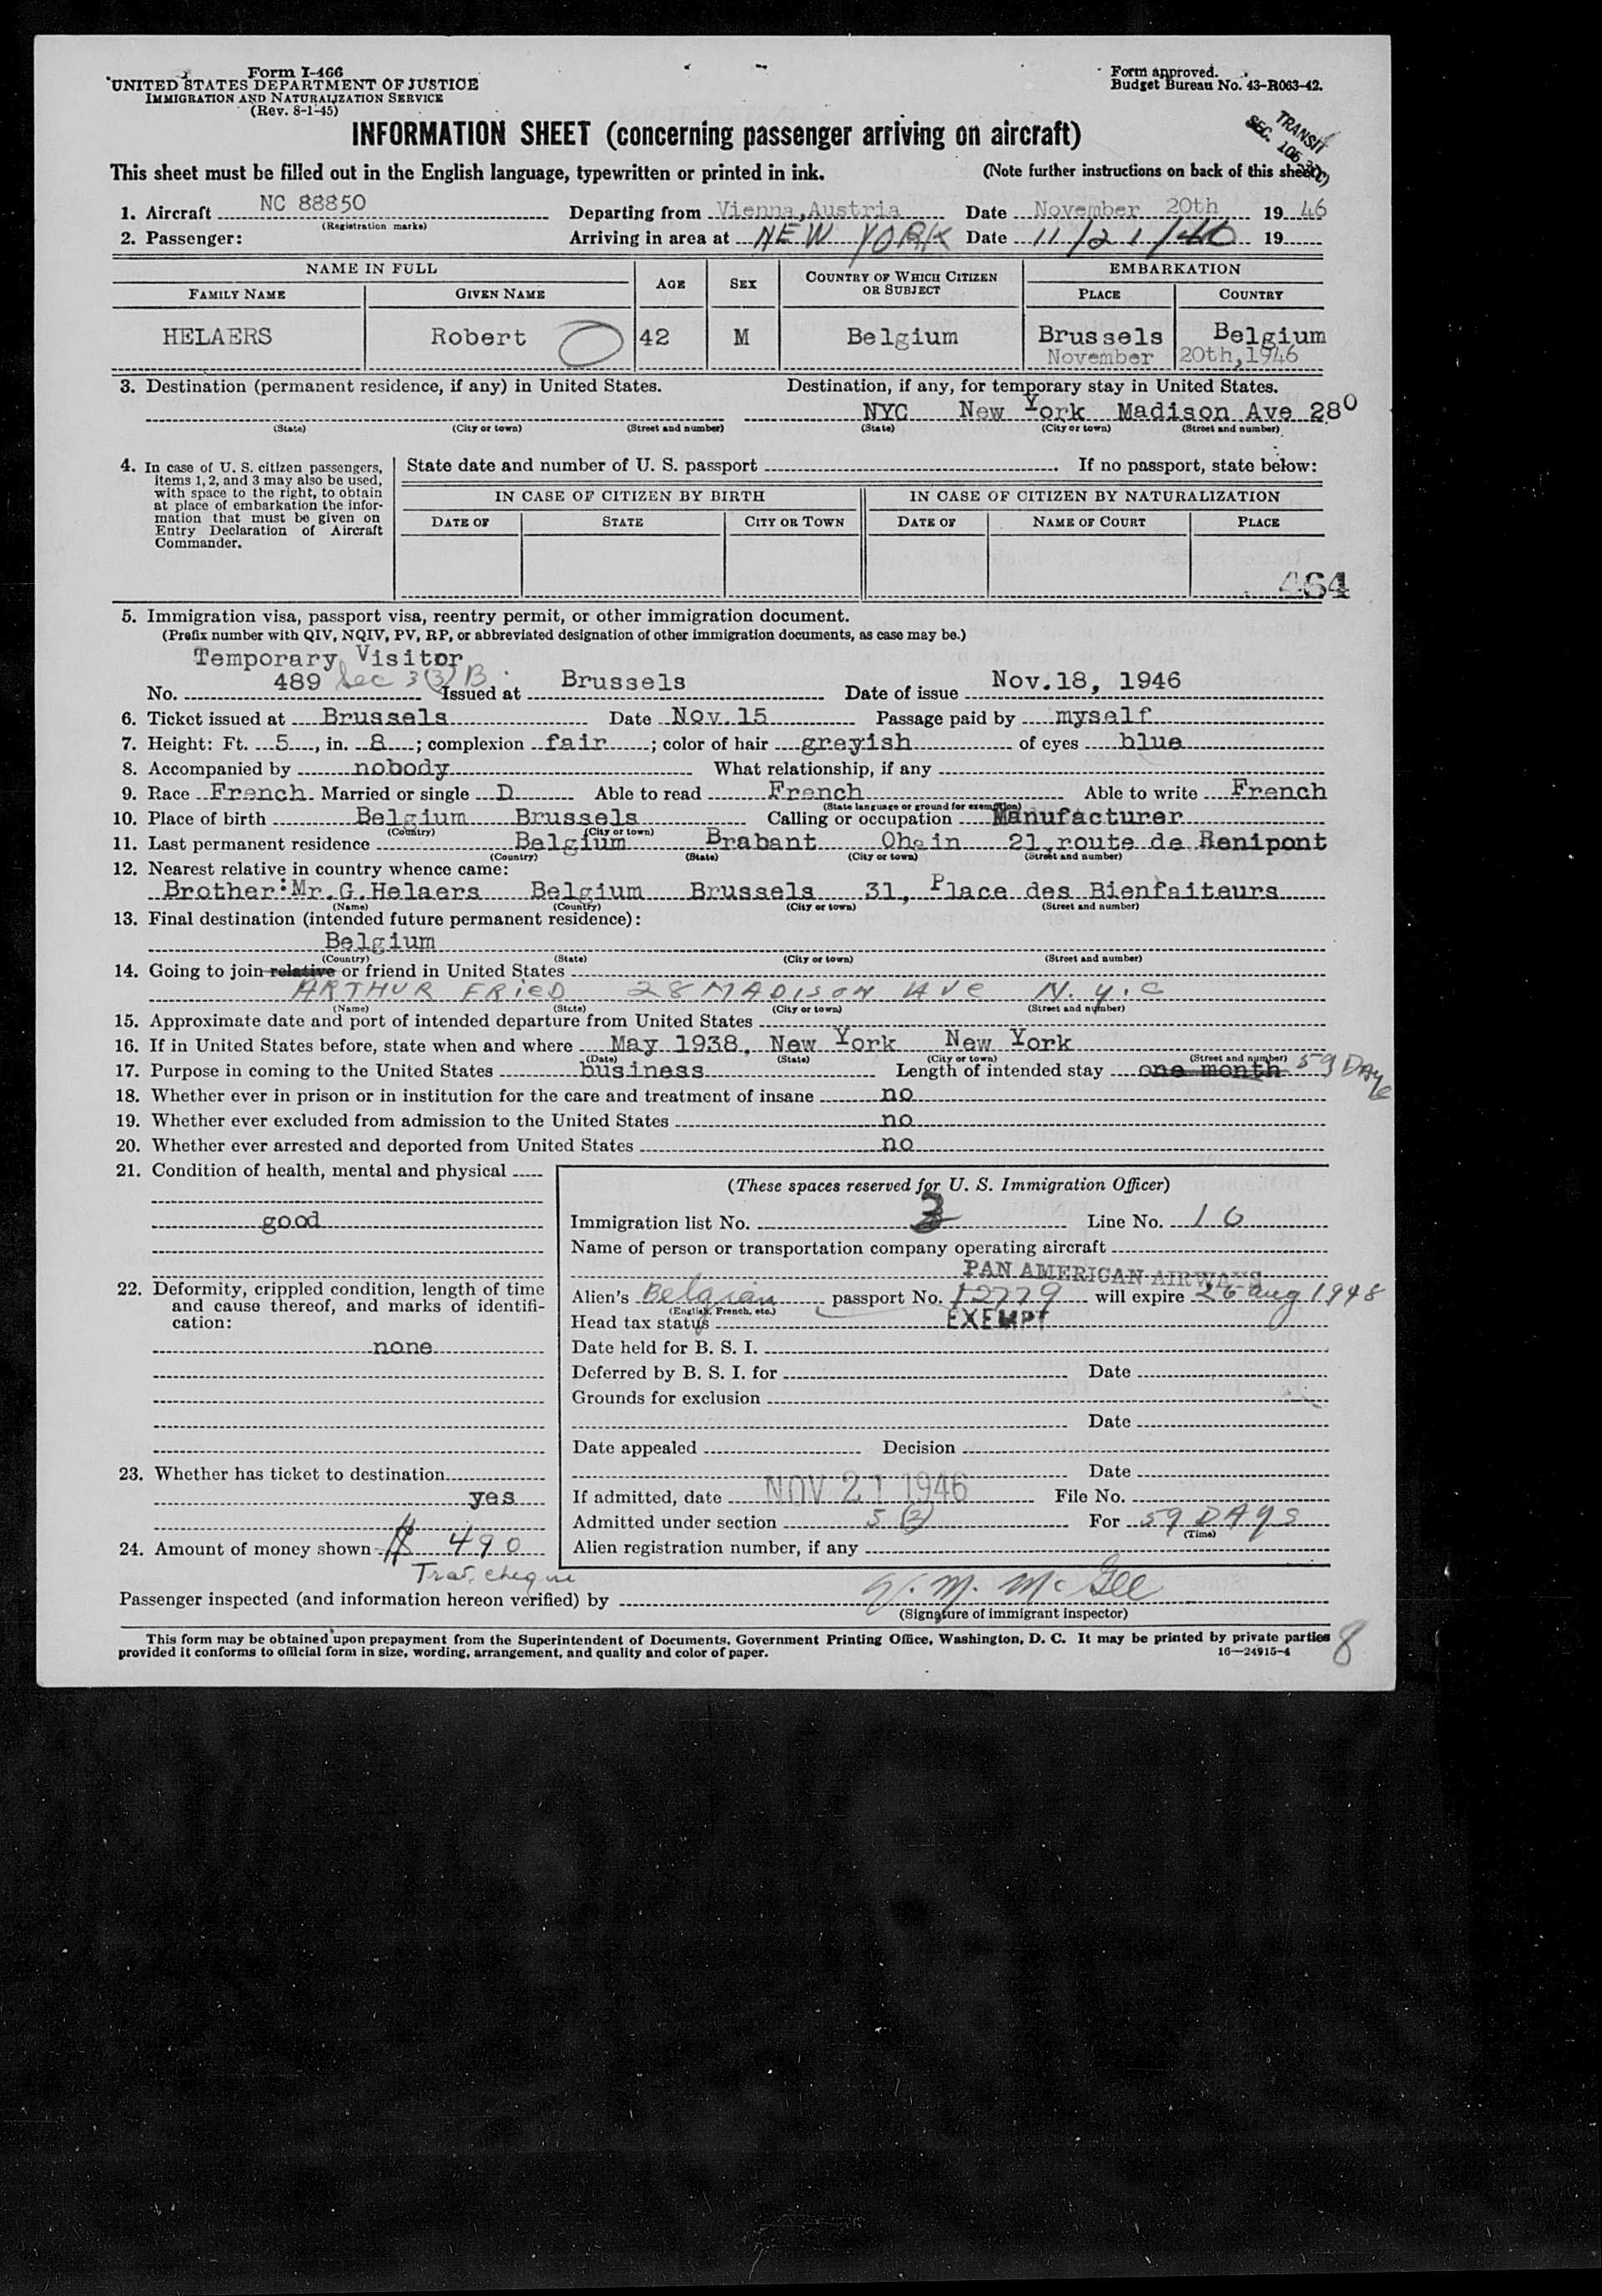 Form I-466
UNITED STATES DEPARTMENT OF JUSTICE
IMMIGRATION AND NATURALIZATION SERVICE
(Rev. 8-1-45)
Form approved.
Budget Bureau No. 43-R063-42.
INFORMATION SHEET (concerning passenger arriving on aircraft)
TRANSIT
SEC.
This sheet must be filled out in the English language, typewritten or printed in ink. (Note further instructions on back of this sheet.)
1. Aircraft NC 88850 Departing from Vienna,Austria Date November 20th 19 46
(Registration marks)
2. Passenger: Arriving in area at NEW YORK Date 11/21/46 19
NAME IN FULL AGE SEX COUNTRY OF WHICH CITIZEN OR SUBJECT EMBARKATION
FAMILY NAME GIVEN NAME PLACE COUNTRY
HELAERS Robert 42 M Belgium Brussels Belgium
November 20th,1946
3. Destination (permanent residence, if any) in United States. Destination, if any, for temporary stay in United States.
NYC New York Madison Ave 280
(State) (City or town) (Street and number) (State) (City or town) (Street and number)
4. In case of U. S. citizen passengers, items 1, 2, and 3 may also be used, with space to the right, to obtain at place of embarkation the information that must be given on Entry Declaration of Aircraft Commander.
State date and number of U. S. passport If no passport, state below:
IN CASE OF CITIZEN BY BIRTH IN CASE OF CITIZEN BY NATURALIZATION
DATE OF STATE CITY OR TOWN DATE OF NAME OF COURT PLACE
464
5. Immigration visa, passport visa, reentry permit, or other immigration document.
(Prefix number with QIV, NQIV, PV, RP, or abbreviated designation of other immigration documents, as case may be.)
Temporary Visitor
No. 489 Sec 3(3) B Issued at Brussels Date of issue Nov.18, 1946
6. Ticket issued at Brussels Date Nov.15 Passage paid by myself
7. Height: Ft. 5, in. 8; complexion fair; color of hair greyish of eyes blue
8. Accompanied by nobody What relationship, if any
9. Race French Married or single D Able to read French Able to write French
(State language or ground for exemption)
10. Place of birth Belgium Brussels Calling or occupation Manufacturer
(Country) (City or town)
11. Last permanent residence Belgium Brabant Ohain 21,route de Renipont
(Country) (State) (City or town) (Street and number)
12. Nearest relative in country whence came:
Brother:Mr.G.Helaers Belgium Brussels 31, Place des Bienfaiteurs
(Name) (Country) (City or town) (Street and number)
13. Final destination (intended future permanent residence):
Belgium
(Country) (State) (City or town) (Street and number)
14. Going to join relative or friend in United States
ARTHUR FRIED 28 MADISON AVE N.Y.C
(Name) (State) (City or town) (Street and number)
15. Approximate date and port of intended departure from United States
16. If in United States before, state when and where May 1938, New York New York
(Date) (State) (City or town) (Street and number)
17. Purpose in coming to the United States business Length of intended stay one month 59 DAYS
18. Whether ever in prison or in institution for the care and treatment of insane no
19. Whether ever excluded from admission to the United States no
20. Whether ever arrested and deported from United States no
21. Condition of health, mental and physical
good
22. Deformity, crippled condition, length of time and cause thereof, and marks of identification:
none
23. Whether has ticket to destination
yes
24. Amount of money shown $ 490
Trav. cheque
(These spaces reserved for U. S. Immigration Officer)
Immigration list No. 3 Line No. 10
Name of person or transportation company operating aircraft
PAN AMERICAN AIRWAYS
Alien's Belgian passport No. 12779 will expire 26 Aug 1948
(English, French, etc.)
Head tax status EXEMPT
Date held for B. S. I.
Deferred by B. S. I. for Date
Grounds for exclusion
Date
Date appealed Decision
Date
If admitted, date NOV 21 1946 File No.
Admitted under section 3 (2) For 59 DAYS
(Time)
Alien registration number, if any
Passenger inspected (and information hereon verified) by V. M. McGee
(Signature of immigrant inspector)
This form may be obtained upon prepayment from the Superintendent of Documents, Government Printing Office, Washington, D. C. It may be printed by private parties
provided it conforms to official form in size, wording, arrangement, and quality and color of paper. 16—24915-4
8